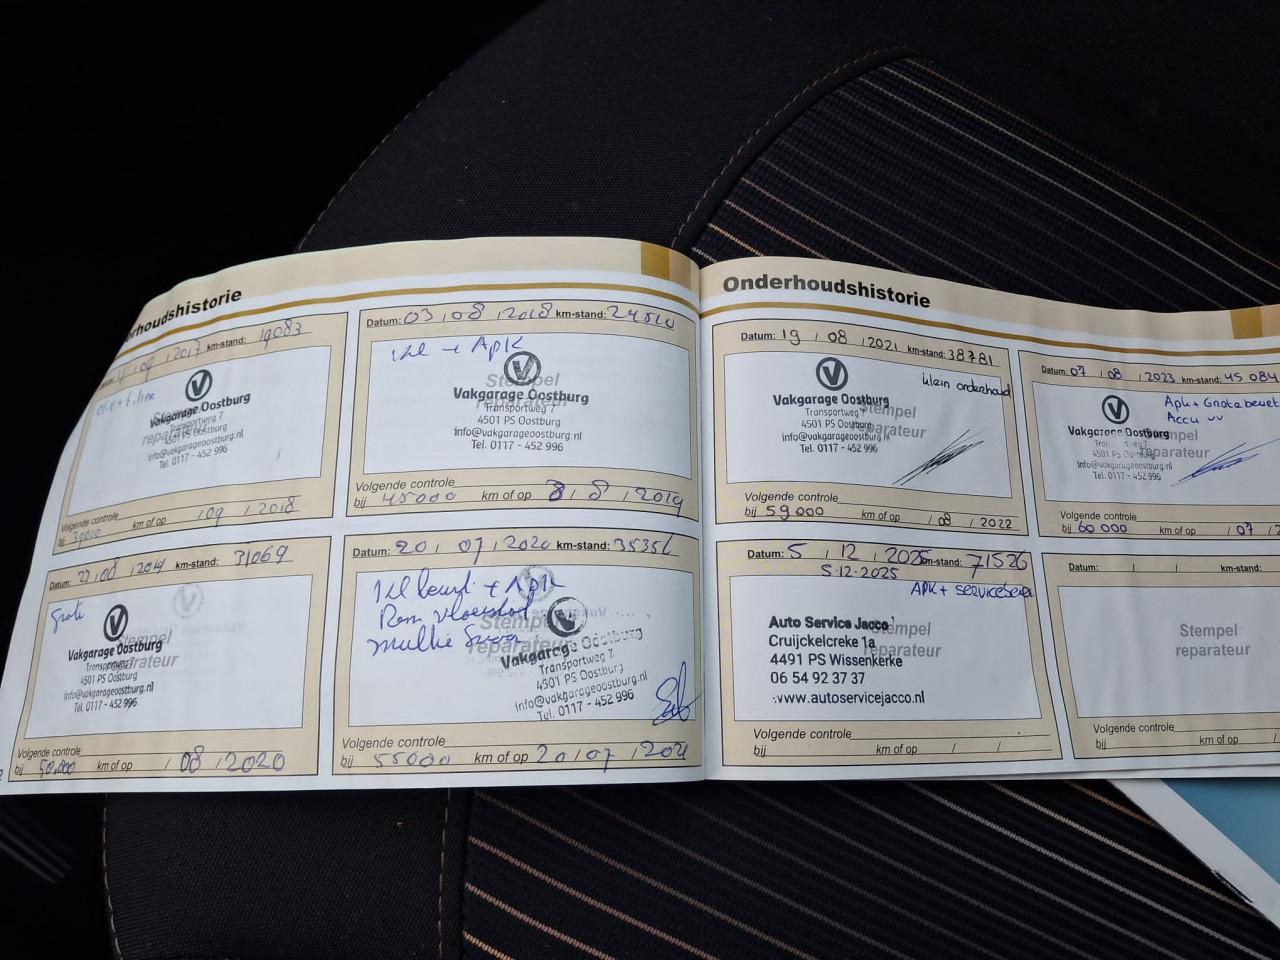 rhoudshistorie
/ 09 / 2017 km-stand: 19083
Olie + filter
Stempel
reparateur
Vakgarage Oostburg
Transportweg 7
4501 PS Oostburg
info@vakgarageoostburg.nl
Tel. 0117 - 452 996
Volgende controle
bij km of op / 09 / 2018
Datum: 03 / 08 / 2018 km-stand: 24810
Kl + Apk
Stempel
reparateur
Vakgarage Oostburg
Transportweg 7
4501 PS Oostburg
info@vakgarageoostburg.nl
Tel. 0117 - 452 996
Volgende controle
bij 45000 km of op 3 / 8 / 2019
Datum: 27 / 08 / 2019 km-stand: 31069
Grote
Stempel
reparateur
Vakgarage Oostburg
Transportweg 7
4501 PS Oostburg
info@vakgarageoostburg.nl
Tel. 0117 - 452 996
Volgende controle
bij 50.000 km of op / 08 / 2020
Datum: 20 / 07 / 2020 km-stand: 35356
Kl beurt + Apk
Rem vloeistof
Stempel
reparateur
Vakgarage Oostburg
Transportweg 7
4501 PS Oostburg
info@vakgarageoostburg.nl
Tel. 0117 - 452 996
Volgende controle
bij 55000 km of op 20 / 07 / 2021
Onderhoudshistorie
Datum: 19 / 08 / 2021 km-stand: 38781
klein onderhoud
Stempel
reparateur
Vakgarage Oostburg
Transportweg 7
4501 PS Oostburg
info@vakgarageoostburg.nl
Tel. 0117 - 452 996
Volgende controle
bij 59000 km of op / 08 / 2022
Datum: 07 / 08 / 2023 km-stand: 45 084
Apk + Grote beurt
Accu vv
Stempel
reparateur
Vakgarage Oostburg
4501 PS Oostburg
info@vakgarageoostburg.nl
Tel. 0117 - 452 996
Volgende controle
bij 60 000 km of op / 07 / 2
Datum: 5 / 12 / 2025 km-stand: 71526
5-12-2025
APK + servicebeur
Stempel
reparateur
Auto Service Jacco
Cruijckelcreke 1a
4491 PS Wissenkerke
06 54 92 37 37
www.autoservicejacco.nl
Volgende controle
bij km of op / /
Datum: / / km-stand:
Stempel
reparateur
Volgende controle
bij km of op / /